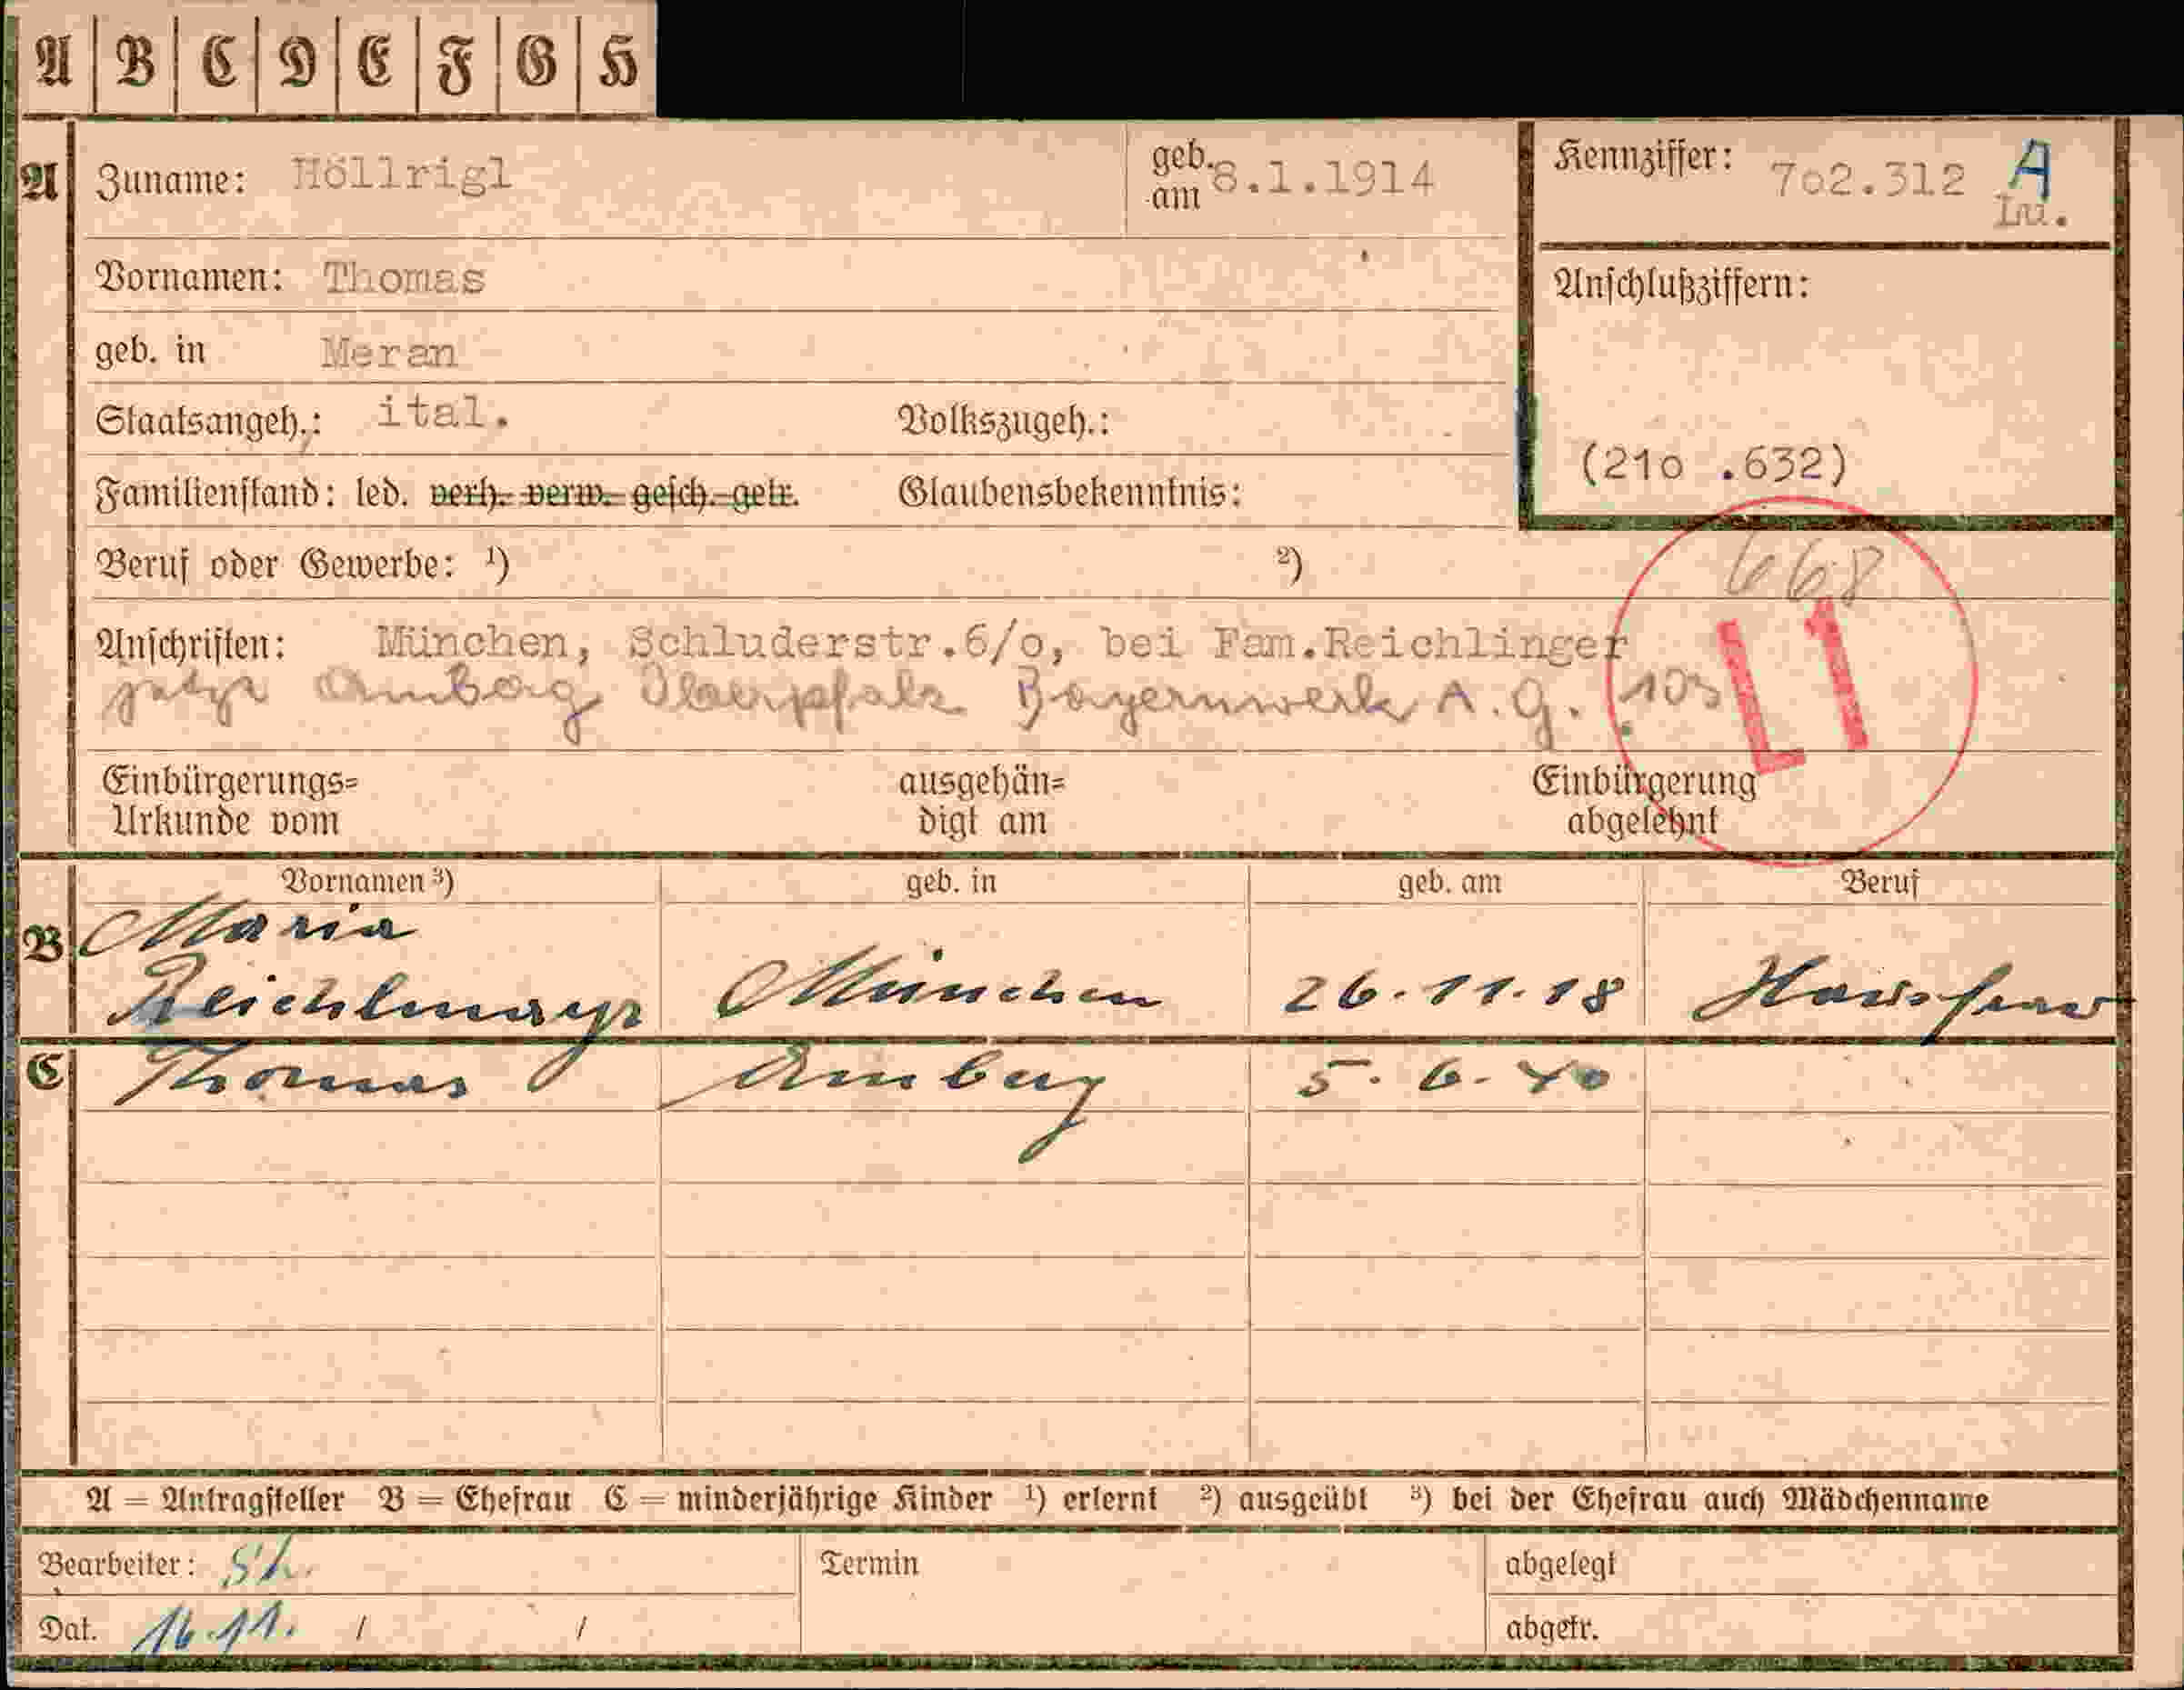 A B C D E F G H
A Zuname: Höllrigl geb. am 8.1.1914 Kennziffer: 7o2.312 A
Lu.
Vornamen: Thomas Anschlußziffern:
geb. in Meran
Staatsangeh.: ital. Volkszugeh.:
(21o .632)
Familienstand: led. verh. verw. gesch. getr. Glaubensbekenntnis:
Beruf oder Gewerbe: ¹) ²) 668
Anschriften: München, Schluderstr.6/o, bei Fam.Reichlinger L1
jetzt Amberg Oberpfalz Bayernwerk A.G. 103
Einbürgerungs= ausgehän= Einbürgerung
Urkunde vom digt am abgelehnt
Vornamen ³) geb. in geb. am Beruf
B Maria
Reichlmayr München 26.11.18 Hausfrau
C Thomas Amberg 5.6.40
A = Antragsteller B = Ehefrau C = minderjährige Kinder ¹) erlernt ²) ausgeübt ³) bei der Ehefrau auch Mädchenname
Bearbeiter: Sh. Termin abgelegt
Dat. 16.11. / / abgetr.